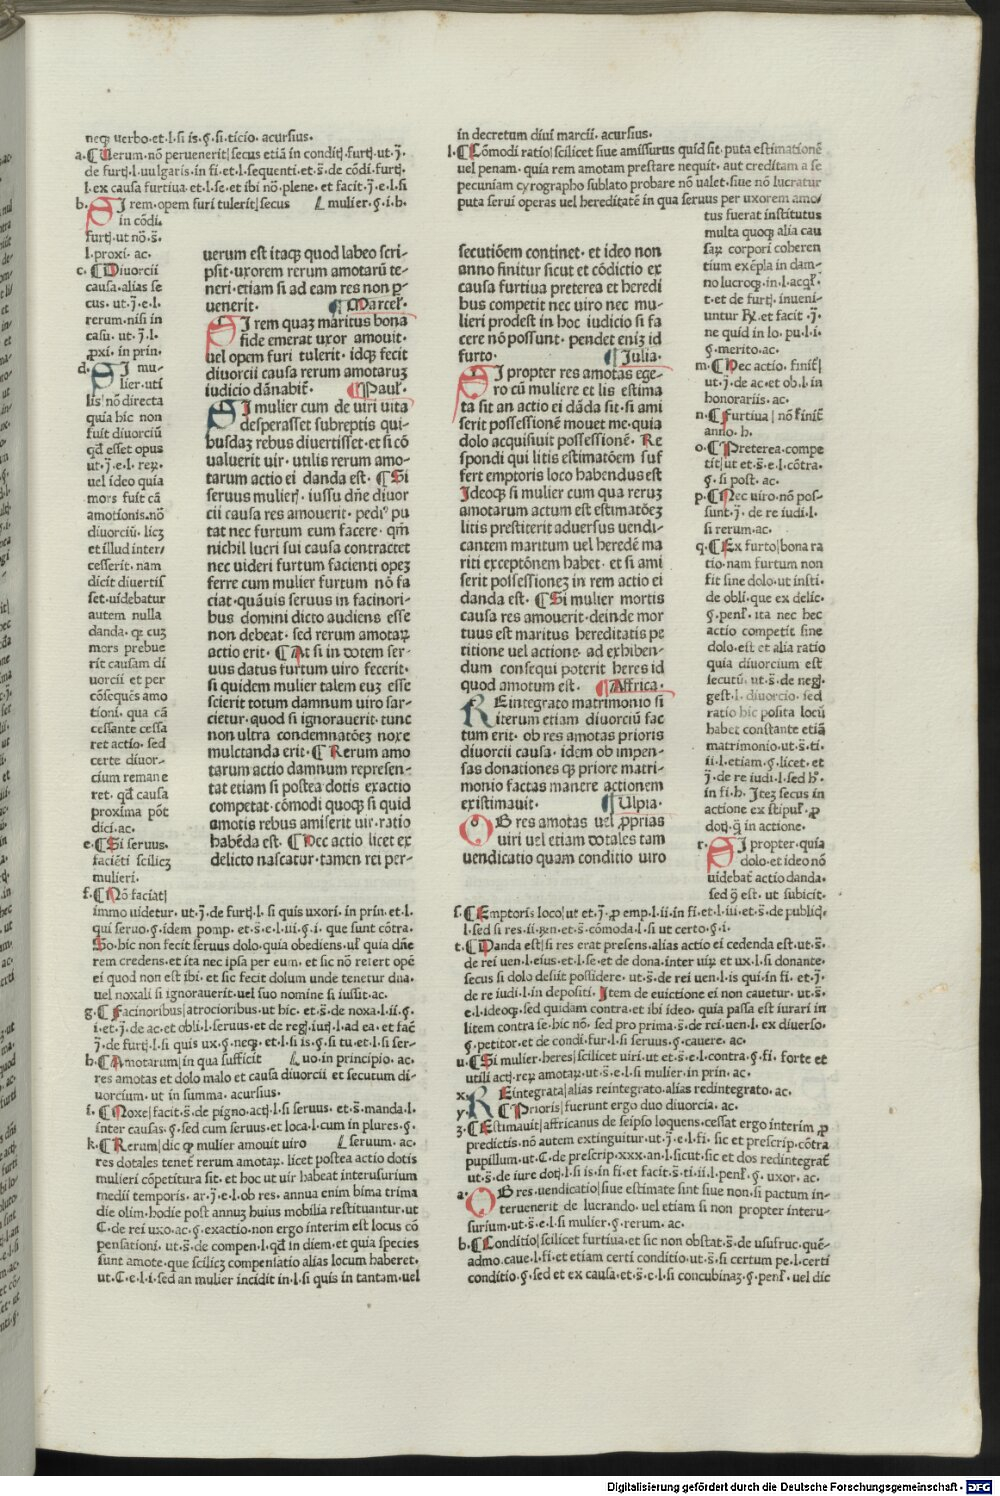 neqȝ uerbo·et·l·si is·§·si·ticio·acursius·
a·⸿Uerum·nō peruenerit|secus etiā in conditȷ̄·furtȷ̄·ut·ȷ̄·
de furtȷ̄·l·uulgaris·in fi·et·l·sequenti·et·s̄·de cōdi·furtȷ̄·
l·ex causa furtiua·et·l·se·et ibi nō·plene·et facit·ȷ̄·e·l·si
b· SI rem·opem furi tulerit|secus mulier·§·i·h·
in cōdi·
furtȷ̄·ut nō·s̄·
l·proxi·ac·
c·⸿Diuorcii
causa·alias se
cus·ut·ȷ̄·e·l·
rerum·nisi in
casu·ut·ȷ̄·l·
ꝓxi·in prin·
d· SI mu-
lier·uti
lis|nō directa
quia hic non
fuit diuorciū
qđ esset opus
ut·ȷ̄·e·l·reꝝ·
uel ideo quia
mors fuit cā
amotionis·nō
diuorciū·licȝ
et illud inter/
cesserit·nam
dicit diuertis
set·uidebatur
autem nulla
danda·qꝛ cuȝ
mors prebue
rit causam di
uorcii et per
cōsequēs amo
tioni·qua cā
cessante cessa
ret actio·sed
certe diuor-
cium remane
ret·qđ causa
proxima pōt
dici·ac·
e·⸿Si seruus·
faciēti scilicȝ
mulieri·
f·⸿Nō faciat|
immo uidetur·ut·ȷ̄·de furtȷ̄·l·si quis uxori·in prin·et·l·
qui seruo·§·idem pomp·et·s̄·e·l·iii·§·i·que sunt cōtra·
So·hic non fecit seruus dolo·quia obediens·ul̄ quia dn̄e
rem credens·et ita nec ipsa per eum·et sic nō refert opē
ei quod non est ibi·et sic fecit dolum unde tenetur dna·
uel noxali si ignorauerit·uel suo nomine si iussit·ac·
g·⸿Facinoribus|atrocioribus·ut hic·et·s̄·de noxa·l·ii·§·
i·et·ȷ̄·de ac·et obli·l·seruus·et de regȷ̄·iurȷ̄·l·ad ea·et fac̄
ȷ̄·de furtȷ̄·l·si quis ux·§·neqȝ·et·l·si is·§·si tu·et·l·si ser-
h·⸿Amotarum|in qua sufficit uo·in principio·ac·
res amotas et dolo malo et causa diuorcii et secutum di-
uorcium·ut in summa·acursius·
i·⸿Noxe|facit·s̄·de pigno·actȷ̄·l·si seruus·et·s̄·manda·l·
inter causas·§·sed cum seruus·et loca·l·cum in plures·§·
k·⸿Rerum|dic ꝙ mulier amouit uiro seruum·ac·
res dotales tenet̄ rerum amotaꝝ·licet postea actio dotis
mulieri cōpetitura sit·et hoc ut uir habeat interusurium
medii temporis·ar·ȷ̄·e·l·ob res·annua enim bima trima
die olim·hodie post annuȝ huius mobilia restituantur·ut
C·de rei uxo·ac·§·exactio·non ergo interim est locus cō
pensationi·ut·s̄·de compen·l·qđ in diem·et quia species
sunt amote·que scilicȝ compensatio alias locum haberet·
ut·C·e·l·i·sed an mulier incidit in·l·si quis in tantam·uel
uerum est itaqȝ quod labeo scri-
psit·uxorem rerum amotarū te-
neri·etiam si ad eam res non ꝑ-
uenerit· ⸿Marcel̄·
SI rem quaȝ maritus bona
fide emerat uxor amouit·
uel opem furi tulerit·idqȝ fecit
diuorcii causa rerum amotaruȝ
iudicio dānabit̄· ⸿Paul̄·
SI mulier cum de uiri uita
desperasset subreptis qui-
busdaȝ rebus diuertisset·et si cō
ualuerit uir·utilis rerum amo-
tarum actio ei danda est·⸿Si
seruus mulierȷ̄·iussu dn̄e diuor
cii causa res amouerit·pediꝰ pu
tat nec furtum eum facere·qm̄
nichil lucri sui causa contractet
nec uideri furtum facienti opeȝ
ferre cum mulier furtum nō fa
ciat·quāuis seruus in facinori-
bus domini dicto audiens esse
non debeat·sed rerum amotaꝝ
actio erit·⸿At si in dotem ser-
uus datus furtum uiro fecerit·
si quidem mulier talem euȝ esse
scierit totum damnum uiro sar-
cietur·quod si ignorauerit·tunc
non ultra condemnatōeȝ noxe
mulctanda erit·⸿Rerum amo
tarum actio damnum represen-
tat etiam si postea dotis exactio
competat·cōmodi quoqȝ si quid
amotis rebus amiserit uir·ratio
habēda est·⸿Nec actio licet ex
delicto nascatur·tamen rei per-
in decretum diui marcii·acursius·
l·⸿Cōmodi ratio|scilicet siue amissurus quid sit·puta estimationē
uel penam·quia rem amotam prestare nequit·aut creditam a se
pecuniam cyrographo sublato probare nō ualet·siue nō lucratur
puta serui operas uel hereditatē in qua seruus per uxorem amo/
tus fuerat institutus
multa quoqȝ alia cau
saꝝ corpori coheren
tium exēpla in dam-
no lucroqȝ·in·l·acql̄·
t·et de furtȷ̄·inueni-
untur ꝶ·et facit·ȷ̄·
ne quid in lo·pu·l·i·
§·merito·ac·
m·⸿Nec actio·finit̄|
ut·ȷ̄·de ac·et ob·l·in
honorariis·ac·
n·⸿Furtiua|nō finit̄
anno·h·
o·⸿Preterea·compe
tit|ut et·s̄·e·l·cōtra·
§·si post·ac·
p·⸿Nec uiro·nō pos-
sunt·ȷ̄·de re iudi·l·
si rerum·ac·
q·⸿Ex furto|bona ra
tio·nam furtum non
fit sine dolo·ut insti·
de obli·que ex delic·
§·penl̄·ita nec hec
actio competit sine
dolo·est et alia ratio
quia diuorcium est
secutū·ut·s̄·de negȷ̄·
gest·l·diuorcio·sed
ratio hic posita locū
habet constante etiā
matrimonio·ut·s̄·ti·
ii·l·etiam·§·licet·et
ȷ̄·de re iudi·l·sed h̄·
in fi·h·Iteȝ secus in
actione ex stipul̄·ꝓ
dotȷ̄·q̄ in actione·
r· SI propter·quia
dolo·et ideo nō
uidebat̄ actio danda·
sed ꝙ est·ut subicit·
secutiōem continet·et ideo non
anno finitur sicut et cōdictio ex
causa furtiua preterea et heredi
bus competit nec uiro nec mu-
lieri prodest in hoc iudicio si fa
cere nō possunt·pendet eniȝ id
furto· ⸿Julia·
SI propter res amotas ege-
ro cū muliere et lis estima
ta sit an actio ei dāda sit·si ami
serit possessionē mouet me·quia
dolo acquisiuit possessionē·Re
spondi qui litis estimatōem suf
fert emptoris loco habendus est
Ideoqȝ si mulier cum qua reruȝ
amotarum actum est estimatōeȝ
litis prestiterit aduersus uendi-
cantem maritum uel heredē ma
riti exceptōnem habet·et si ami
serit possessioneȝ in rem actio ei
danda est·⸿Si mulier mortis
causa res amouerit·deinde mor
tuus est maritus hereditatis pe
titione uel actione ad exhiben-
dum consequi poterit heres id
quod amotum est· ⸿Affrica·
REintegrato matrimonio si
iterum etiam diuorciū fac
tum erit·ob res amotas prioris
diuorcii causa·idem ob impen-
sas donationes qȝ priore matri-
monio factas manere actionem
existimauit· ⸿Ulpia·
OB res amotas uel ꝓprias
uiri uel etiam dotales tam
uendicatio quam conditio uiro
s·⸿Emptoris loco|ut et·ȷ̄·ꝓ emp·l·ii·in fi·et·l·iii·et·s̄·de publiqȝ·
l·sed si res·ii·ꝝen·et·s̄·cōmoda·l·si ut certo·§·i·
t·⸿Danda est|si res erat presens·alias actio ei cedenda est·ut·s̄·
de rei uen·l·eius·et·l·se·et de dona·inter uiꝝ et ux·l·si donante·
secus si dolo desiit possidere·ut·s̄·de rei uen·l·is qui in fi·et·ȷ̄·
de re iudi·l·in depositi·Item de euictione ei non cauetur·ut·s̄·
e·l·ideoqȝ·sed quidam contra·et ibi ideo·quia passa est iurari in
litem contra se·hic nō·sed pro prima·s̄·de rei·uen·l·ex diuerso·
§·petitor·et de condi·fur·l·si seruus·§·cauere·ac·
u·⸿Si mulier·heres|scilicet uiri·ut et·s̄·e·l·contra·§·fi·forte et
utili actȷ̄·reꝝ amotaꝝ·ut·s̄·e·l·si mulier·in prin·ac·
x· REintegrata|alias reintegrato·alias redintegrato·ac·
y· ⸿Prioris|fuerunt ergo duo diuorcia·ac·
z·⸿Estimauit|affricanus de seipso loquens·cessat ergo interim·ꝓ
predictis·nō autem extinguitur·ut·ȷ̄·e·l·fi·sic et prescrip·cōtra
pupillum·ut·C·de prescrip·xxx·an·l·sicut·sic et dos redintegrat̄
ut·s̄·de iure dotȷ̄·l·si is·in fi·et facit·s̄·ti·ii·l·penl̄·§·uxor·ac·
a· OB res·uendicatio|siue estimate sint siue non·si pactum in-
teruenerit de lucrando·uel etiam si non propter interu-
surium·ut·s̄·e·l·si mulier·§·rerum·ac·
b·⸿Conditio|scilicet furtiua·et sic non obstat·s̄·de usufruc·quē-
admo·caue·l·fi·et etiam certi conditio·ut·s̄·si certum pe·l·certi
conditio·§·sed et ex causa·et·s̄·e·l·si concubinaȝ·§·penl̄·uel dic
Digitalisierung gefördert durch die Deutsche Forschungsgemeinschaft - DFG